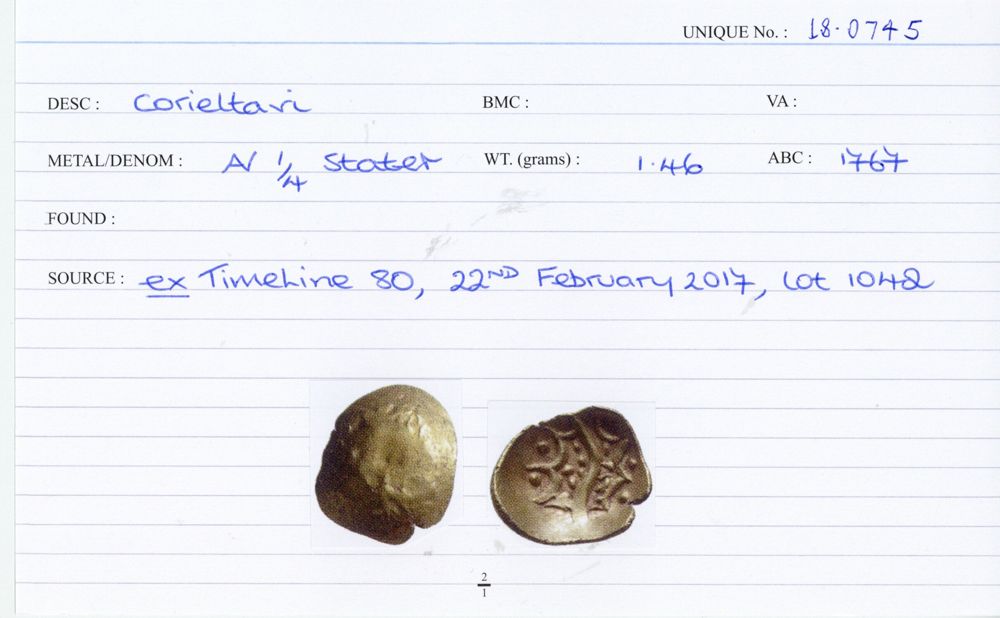 UNIQUE No. : 18.0745
DESC : Corieltavi BMC : VA :
METAL/DENOM : AV 1/4 Stater WT. (grams) : 1.46 ABC : 1767
FOUND :
SOURCE : ex TimeLine 80, 22ND February 2017, Lot 1042
2
1